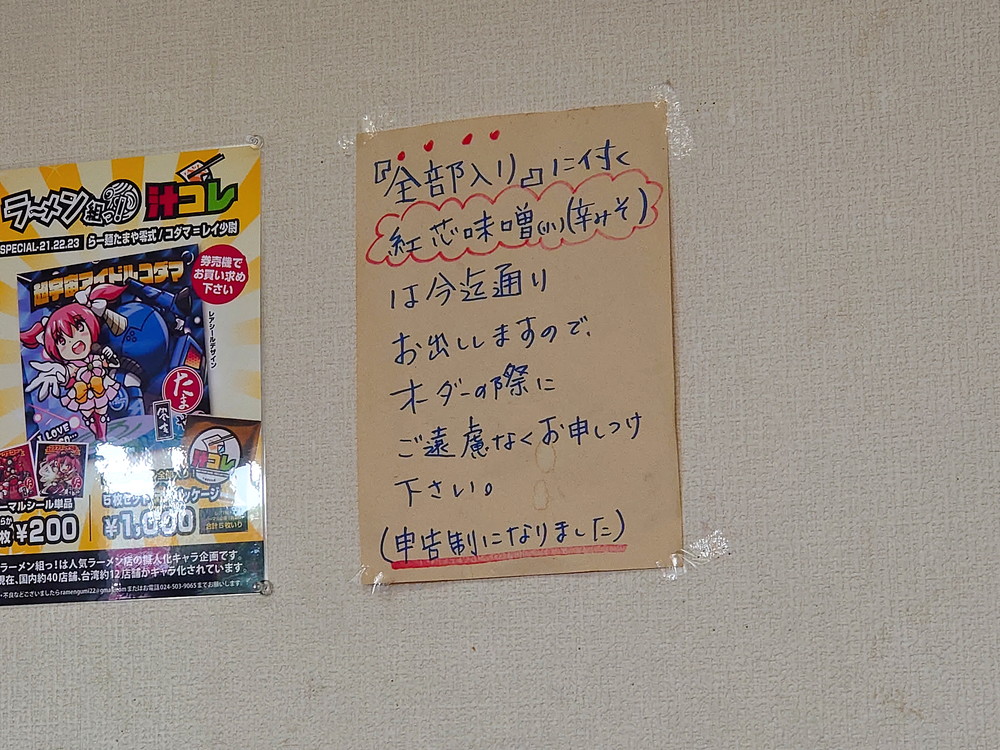 ラーメン組っ! 汁コレ
SPECIAL-21.22.23 らー麺たまや零式/コダマ=レイ少尉
券売機で
お買い求め
下さい
超宇宙アイドルコダマ
レアシールデザイン
たま
I LOVE
汁コレ
ーマルシール単品
枚 ¥200
5枚セット
ッケージ
¥1,000
合計5枚いり
ラーメン組っ!は人気ラーメン店の擬人化キャラ企画です。
現在、国内約40店舗、台湾約12店舗がキャラ化されています。
・不良などございましたらramengumi22@gmail.comまたはお電話024-503-9065までお願いします
『全部入り』に付く
紅芯味噌(小)(辛みそ)
は今迄通り
お出ししますので、
オーダーの際に
ご遠慮なくお申しつけ
下さい。
(申告制になりました)